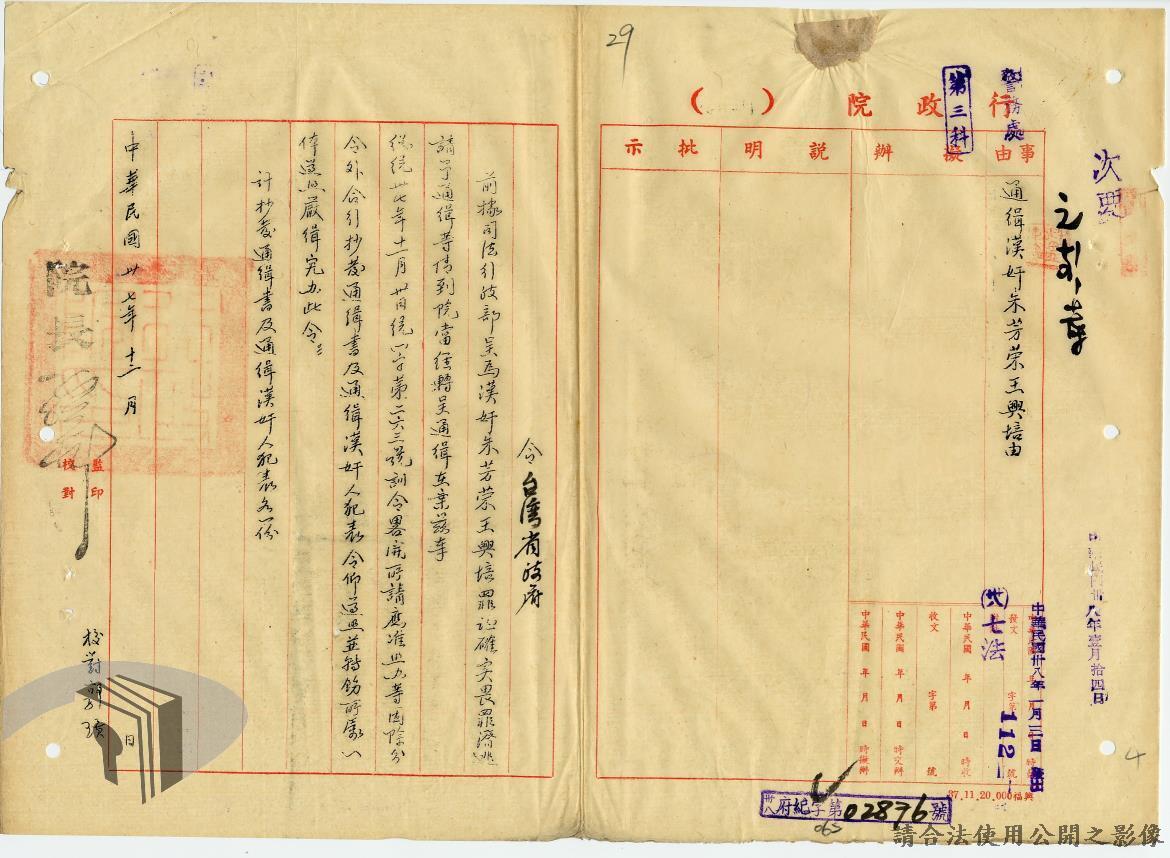 29
次要
警務處
第三科
行政院（　）
事由
擬辦
說明
批示
通緝漢奸朱芳荣王興培由
中華民國卅八年壹月拾四日
中華民國卅八年一月三日發出
發文
字第
號
七法
1121
收文
字第
號
中華民國 年 月 日 時收
中華民國 年 月 日 時交辦
中華民國 年 月 日 時擬辦
37.11.20.000福興
卅八府紀字第02876號
063
4
令台灣省政府
前據司法行政部呈為漢奸朱芳荣王興培罪証確实畏罪潛逃
請予通緝等情到院當經轉呈通緝在案茲奉
總統卅七年十一月卅日統八字第二六三號訓令畧開所請應准照办等因除分
令外合行抄發通緝書及通緝漢奸人犯表令仰遵照並轉飭所屬一
体遵照嚴緝究办此令
計抄發通緝書及通緝漢奸人犯表各一份
院長
中華民國卅七年十二月 日
監印
校對
校對
請合法使用公開之影像